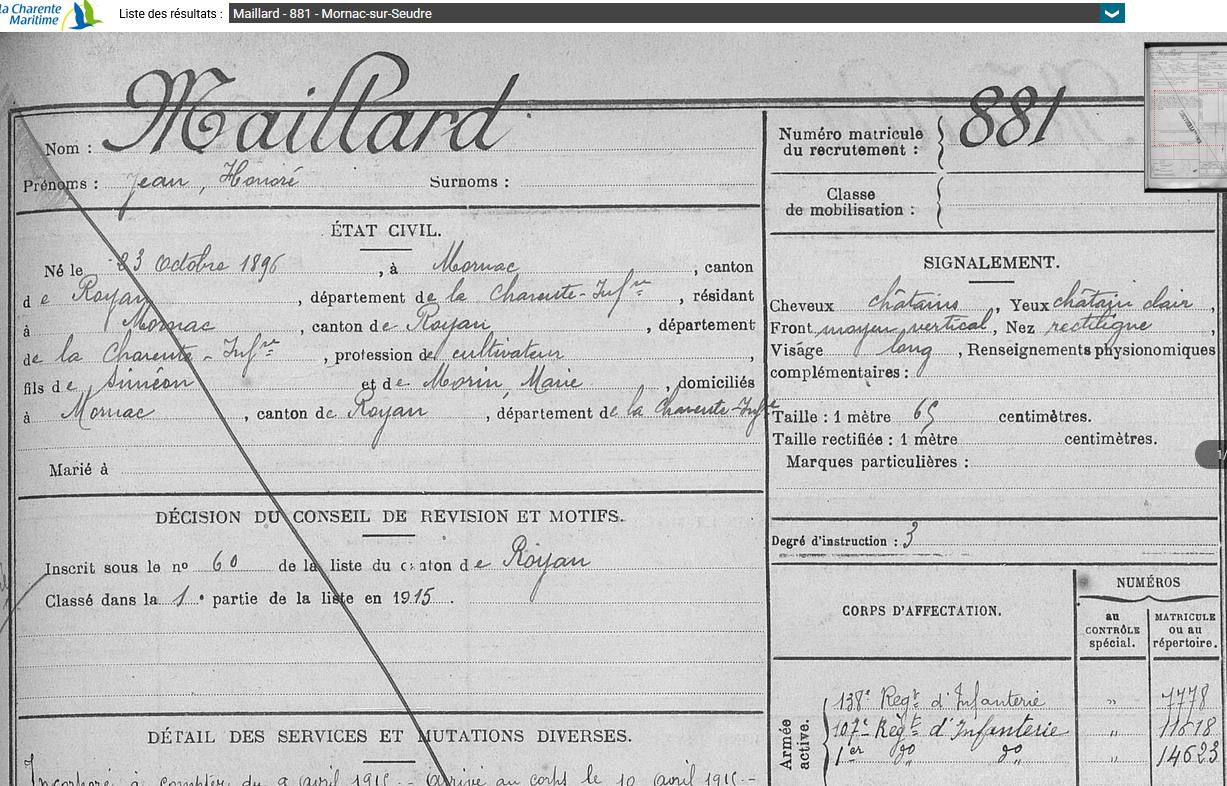 la Charente
Maritime
Liste des résultats : Maillard - 881 - Mornac-sur-Seudre
Nom : Maillard
Prénoms : Jean, Honoré Surnoms :
Numéro matricule
du recrutement : 881
Classe
de mobilisation :
ÉTAT CIVIL.
Né le 23 Octobre 1896, à Mornac, canton
de Royan, département de la Charente-Infre, résidant
à Mornac, canton de Royan, département
de la Charente-Infre, profession de cultivateur,
fils de Siméon et de Morin, Marie, domiciliés
à Mornac, canton de Royan, département de la Charente-Infre
Marié à
SIGNALEMENT.
Cheveux châtains, Yeux châtain clair,
Front moyen, vertical, Nez rectiligne,
Visage long, Renseignements physionomiques
complémentaires :
Taille : 1 mètre 65 centimètres.
Taille rectifiée : 1 mètre centimètres.
Marques particulières :
DÉCISION DU CONSEIL DE REVISION ET MOTIFS.
Inscrit sous le nº 60 de la liste du canton de Royan
Classé dans la 1e partie de la liste en 1915.
Degré d'instruction : 3
CORPS D'AFFECTATION.
NUMÉROS
au
CONTRÔLE
spécial.
MATRICULE
ou au
répertoire.
Armée
active.
138e Regt d'Infanterie " 7778
107e Régt d'Infanterie " 11618
1er do do " 14623
DÉTAIL DES SERVICES ET MUTATIONS DIVERSES.
Incorporé à compter du 9 avril 1915.- Arrivé au corps le 10 avril 1915.-